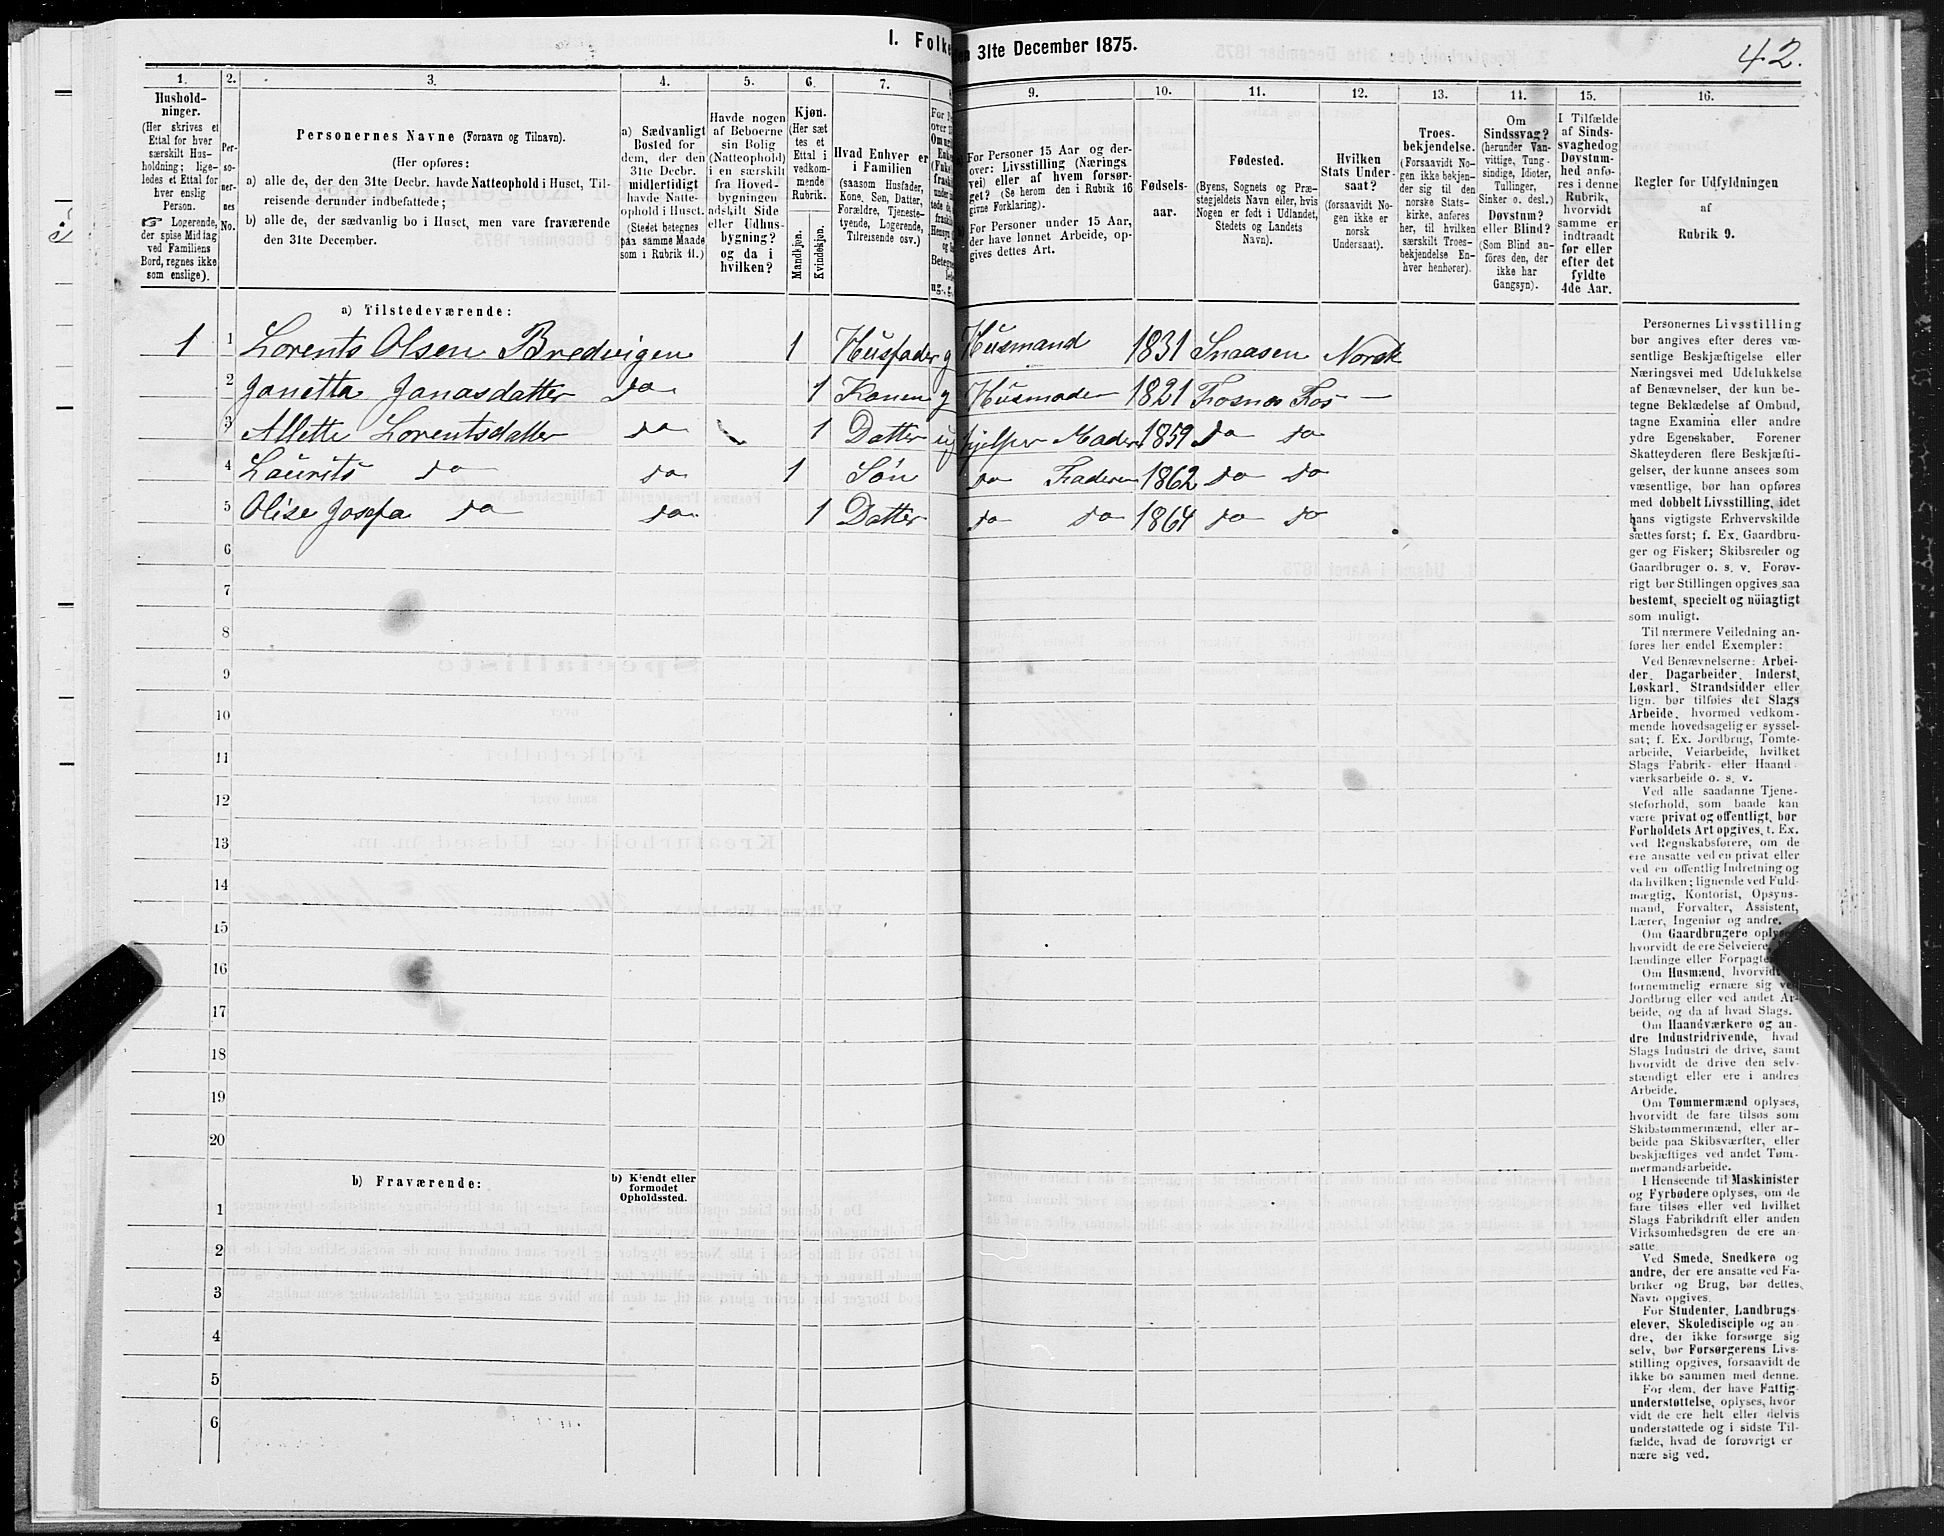 I. Folke
den 31te December 1875.
42.
1. 2. 3. 4. 5. 6. 7. 9. 10. 11. 12. 13. 14. 15. 16.
Hushold-
ninger.
(Her skrives et
Ettal for hver
særskilt Hus-
holdning; lige-
ledes et Ettal for
hver enslig
Person.
☞ Logerende,
der spise Middag
ved Familiens
Bord, regnes ikke
som enslige).
Per-
so-
ner-
nes
No.
Personernes Navne (Fornavn og Tilnavn).
(Her opføres:
a) alle de, der den 31te Decbr. havde Natteophold i Huset, Til-
reisende derunder indbefattede;
b) alle de, der sædvanlig bo i Huset, men vare fraværende
den 31te December.
a) Sædvanligt
Bosted for
dem, der den
31te Decbr.
midlertidigt
havde Natte-
ophold i Huset.
(Stedet betegnes
paa samme Maade
som i Rubrik 11.)
Havde nogen
af Beboerne
sin Bolig
(Natteophold)
i en særskilt
fra Hoved-
bygningen
adskilt Side
eller Udhus-
bygning?
og da i
hvilken?
Kjøn.
(Her sæt
tes et
Ettal i
vedkom-
mende
Rubrik.
Mandkjøn.
Kvindekjøn.
Hvad Enhver er
i Familien
(saasom Husfader,
Kone, Søn, Datter,
Forældre, Tjeneste-
tyende, Logerende,
Tilreisende osv.)
For Personer 15 Aar og der-
over: Livsstilling (Nærings
vei) eller af hvem forsør-
get? (Se herom den i Rubrik 16
givne Forklaring).
For Personer under 15 Aar,
der have lønnet Arbeide, op-
gives dettes Art.
Fødsels-
aar.
Fødested.
(Byens, Sognets og Præ-
stegjeldets Navn eller, hvis
Nogen er født i Udlandet,
Stedets og Landets
Navn).
Hvilken
Stats Under-
saat?
(forsaavidt No-
gen ikke er
norsk
Undersaat).
Troes-
bekjendelse.
(Forsaavidt No-
gen ikke bekjen-
der sig til den
norske Stats-
kirke, anføres
her, til hvilken
særskilt Troes-
bekjendelse En-
hver henhører).
Om
Sindssvag?
(herunder Van-
vittige, Tung-
sindige, Idioter,
Tullinger,
Sinker o. desl.)
Døvstum?
eller Blind?
(Som Blind an-
føres den, der
ikke har
Gangsyn).
I Tilfælde
af Sinds-
svaghedog
Døvstum-
hed anfø-
res i denne
Rubrik,
hvorvidt
samme er
indtraadt
før eller
efter det
fyldte
4de Aar.
Regler for Udfyldningen
af
Rubrik 9.
a) Tilstedeværende:
1 1 Lorents Olsen Bredvigen 1 Husfader g Husmand 1831 Snaasen Norsk
2 Janetta Jonasdatter do 1 Konen g Husmoder 1821 Fosnæs Fos —
3 Allette Lorentsdatter do 1 Datter ug hjelper Moder 1859 do do
4 Laurits do do 1 Søn do Faderen 1862 do do
5 Olise Josefa do do 1 Datter do do 1864 do do
6
7
8
9
10
11
12
13
14
15
16
17
18
19
20
b) Fraværende:
b) Kjendt eller
formodet
Opholdssted.
1
2
3
4
5
6
Personernes Livsstilling
bør angives efter deres væ-
sentlige Beskjæftigelse eller
Næringsvei med Udelukkelse
af Benævnelser, der kun be-
tegne Beklædelse af Ombud,
tagne Examina eller andre
ydre Egenskaber. Forener
Skatteyderen flere Beskjæfti-
gelser, der kunne ansees som
væsentlige, bør han opføres
med dobbelt Livsstilling, idet
hans vigtigste Erhvervskilde
sættes først; f. Ex. Gaardbru-
ger og Fisker; Skibsreder og
Gaardbruger o. s. v. Forøv-
rigt bør Stillingen opgives saa
bestemt, specielt og nöiagtigt
som muligt.
Til nærmere Veiledning an-
føres her endel Exempler:
Ved Benævnelserne: Arbei-
der, Dagarbeider, Inderst,
Løskarl, Strandsidder eller
lign. bør tilføies det Slags
Arbeide, hvormed vedkom-
mende hovedsagelig er syssel-
sat; f. Ex. Jordbrug, Tomte-
arbeide, Veiarbeide, hvilket
Slags Fabrik- eller Haand-
værksarbeide o. s. v.
Ved alle saadanne Tjene-
steforhold, som baade kan
være privat og offentligt, bør
Forholdets Art opgives, t. Ex.
ved Regnskabsførere, om de
ere ansatte ved en privat eller
ved en offentlig Indretning og
da hvilken; lignende ved Fuld-
mægtig, Kontorist, Opsyns-
mand, Forvalter, Assistent,
Lærer, Ingeniør og andre.
Om Gaardbrugere oplyse
hvorvidt de ere Selveiere,
lændinge eller Forpagte
Om Husmænd, hvorvidt
fornemmelig ernære sig ved
Jordbrug eller ved andet Ar-
beide, og da af hvad Slags.
Om Haandværkere og an-
dre Industridrivende, hvad
Slags Industri de drive, samt
hvorvidt de drive den selv-
stændigt eller ere i andres
Arbeide.
Om Tømmermænd oplyses,
hvorvidt de fare tilsøs som
Skibstømmermænd, eller ar-
beide paa Skibsværfter, eller
beskjæftiges ved andet Tøm-
mermandsarbeide.
I Henseende til Maskinister
og Fyrbødere oplyses, om de
fare tilsøs eller ved hvilket
Slags Fabrikdrift eller anden
Virksomhedsgren de ere an-
satte.
Ved Smede, Snedkere og
andre, der ere ansatte ved Fa-
briker og Brug, bør dettes
Navn opgives.
For Studenter, Landbrugs-
elever, Skoledisciple og an-
dre, der ikke forsørge sig
selv, bør Forsørgerens Livs-
stilling opgives, forsaavidt de
ikke bo sammen med denne.
For dem, der have Fattig-
understøttelse, oplyses, hvor
vidt de ere helt eller delvis
understøttede og i sidste Til-
fælde, hvad de forøvrigt er
nære sig ved.